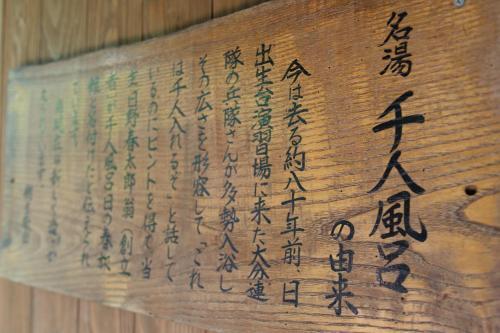 名湯 千人風呂
の由来
今は去る約八十年前、日
出生台演習場に来た大分連
隊の兵隊さんが多勢入浴し
その広さを形容して「これ
は千人入れるぞ」と話して
いるのにヒントを得て当
主日野春太郎翁(創立
者)が千人風呂日の春
と名付けたと伝えられ
ています